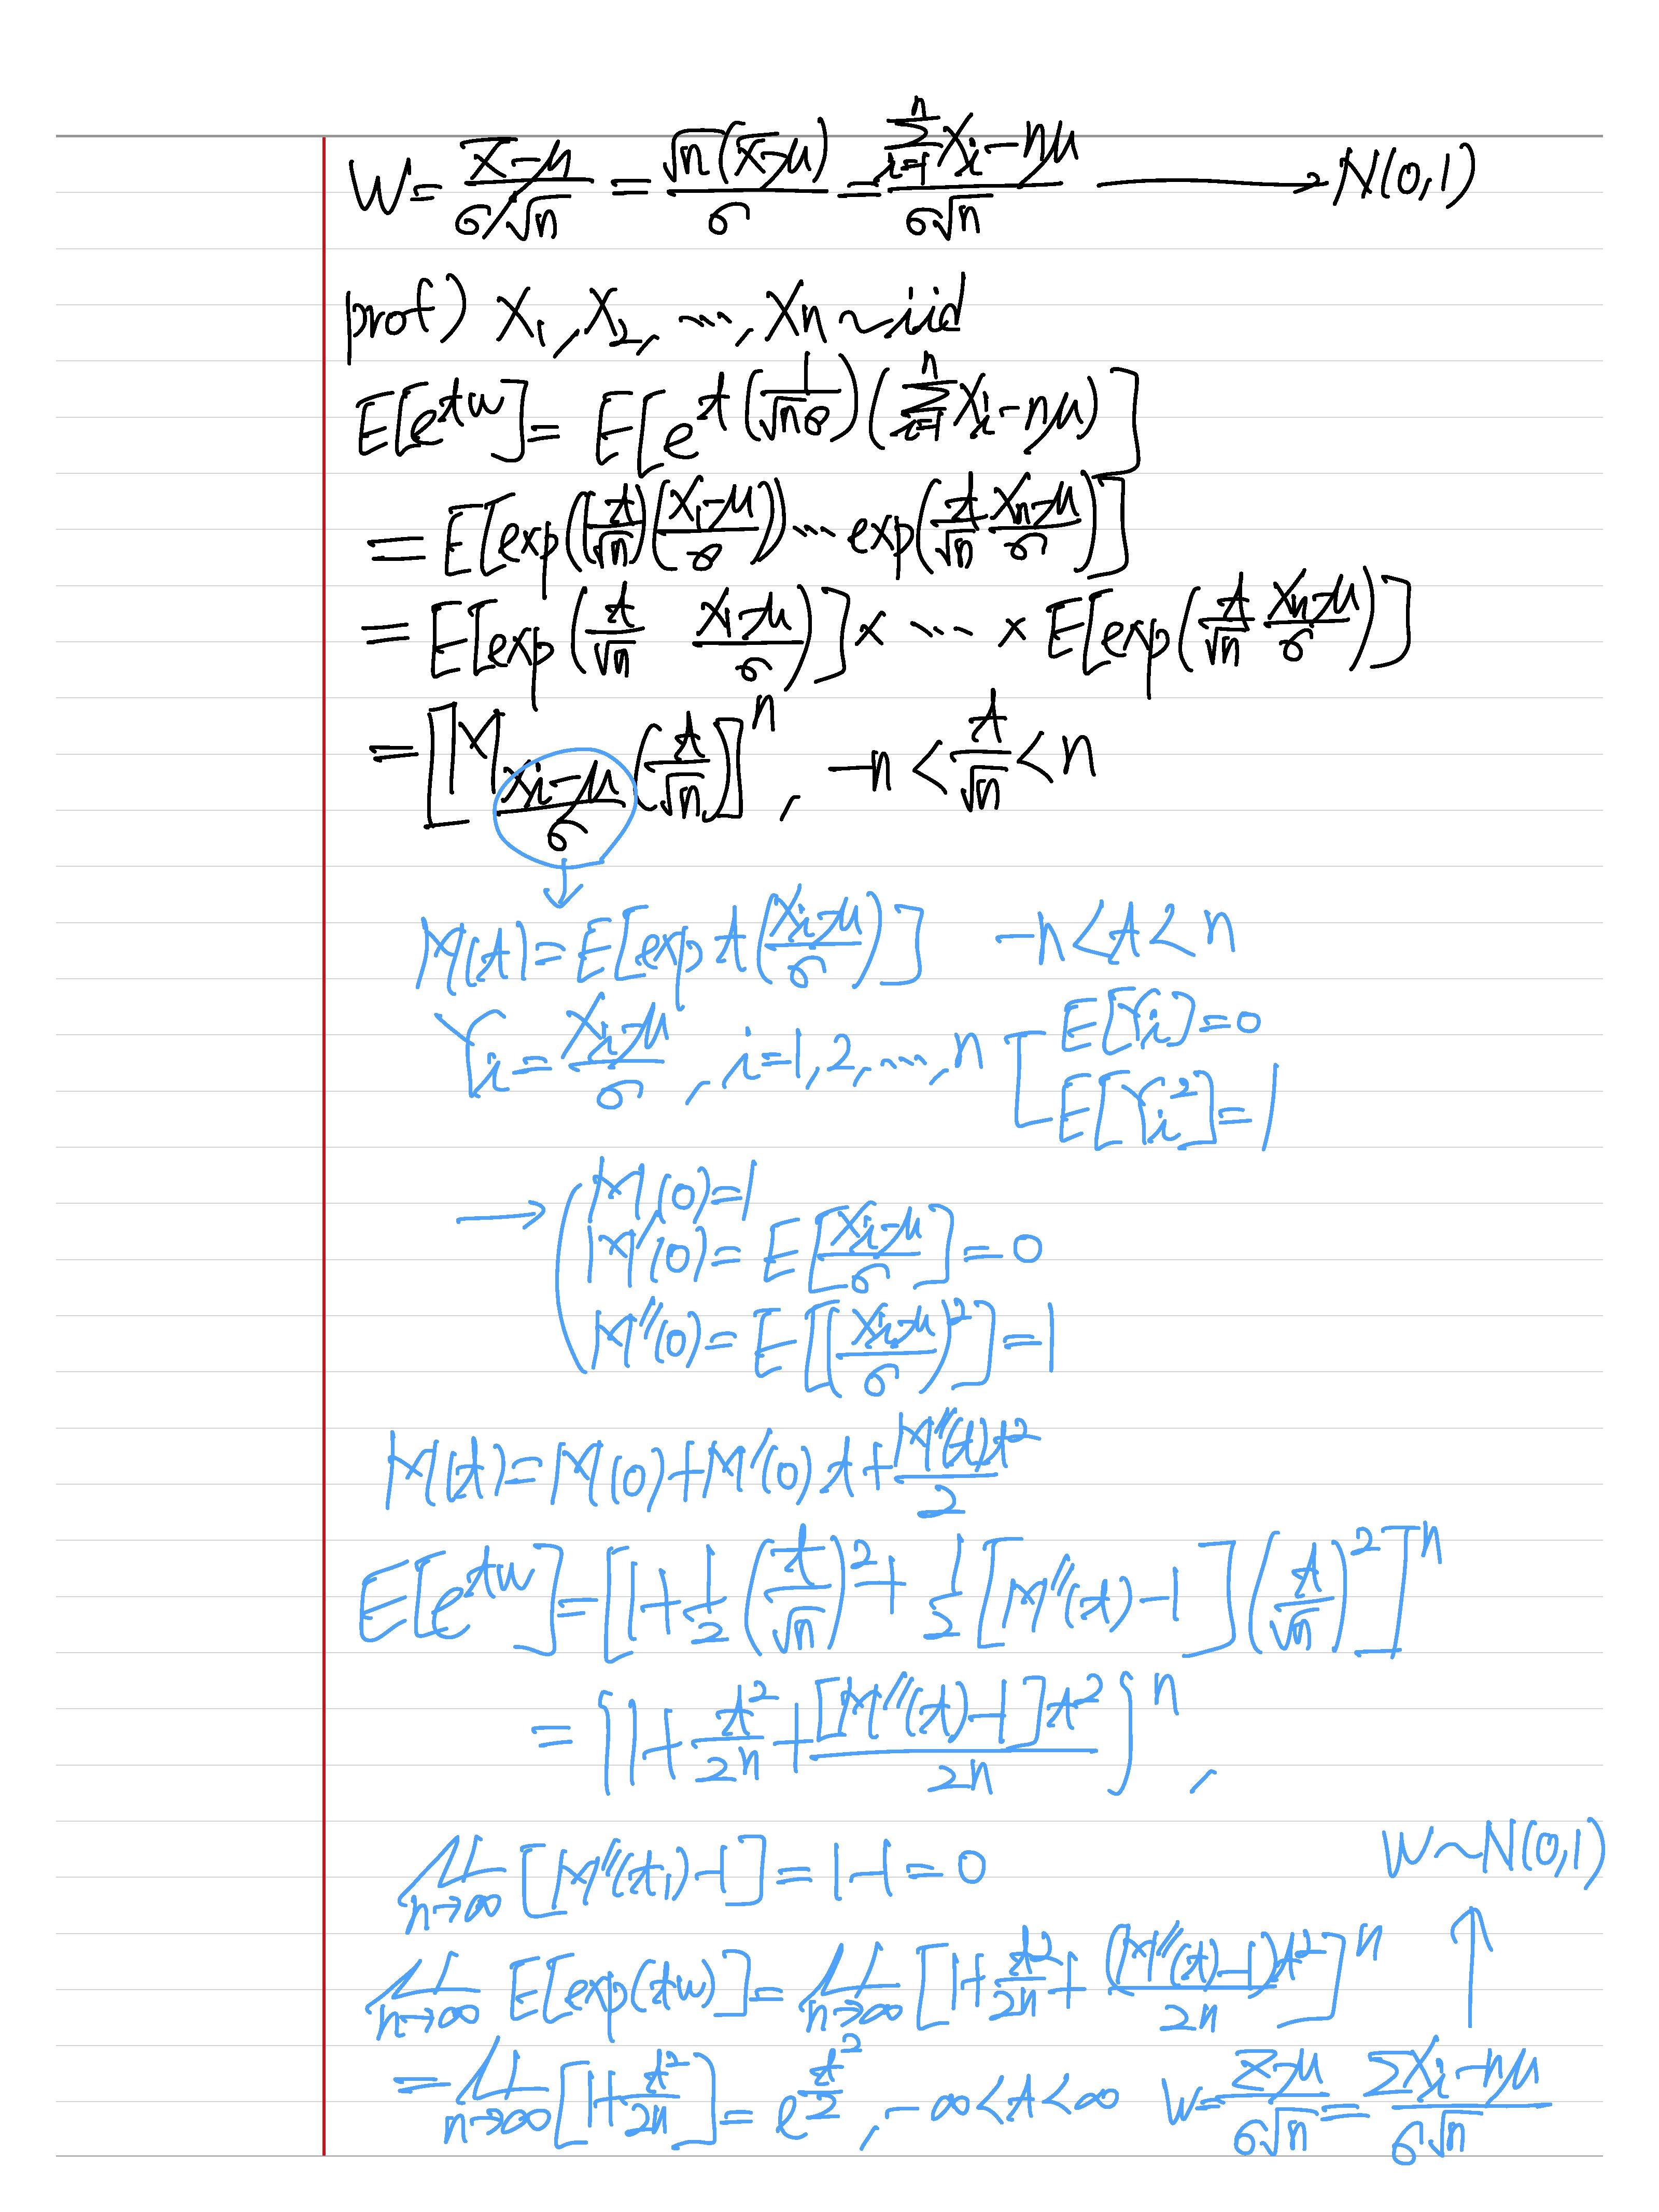 W = (X̄-μ)/(σ/√n) = √n(X̄-μ)/σ = (Σ_{i=1}^{n} Xi - nμ)/(σ√n) ⟶ N(0,1)
prof) X₁, X₂, ..., Xn ~ iid
E[e^{tw}] = E[e^{t(1/(√nσ))(Σ_{i=1}^{n} Xi - nμ)}]
= E[exp((t/√n)((X₁-μ)/σ)) ... exp((t/√n)(Xn-μ)/σ)]
= E[exp((t/√n) (X₁-μ)/σ)] × ... × E[exp((t/√n)(Xn-μ)/σ)]
= [M_{(Xi-μ)/σ}(t/√n)]^n, -n < t/√n < n
↓
M(t) = E[exp t((Xi-μ)/σ)] -n < t < n
Yi = (Xi-μ)/σ, i=1,2,...,n [ E[Yi] = 0
E[Yi²] = 1
→ ( M(0) = 1
M'(0) = E[(Xi-μ)/σ] = 0
M''(0) = E[((Xi-μ)/σ)²] = 1
M(t) = M(0) + M'(0)t + M''(t)t²/2
E[e^{tw}] = [1 + 1/2 (t/√n)² + 1/2 [M''(t) - 1](t/√n)²]^n
= {1 + t²/2n + [M''(t) - 1]t²/2n}^n,
lim_{n→∞} [M''(t₁) - 1] = 1 - 1 = 0
W ~ N(0,1)
↑
lim_{n→∞} E[exp(tw)] = lim_{n→∞} [1 + t²/2n + (M''(t) - 1)t²/2n]^n
= lim_{n→∞} [1 + t²/2n] = e^{t²/2}, -∞ < t < ∞ W = (X̄-μ)/(σ√n) = (ΣXi - nμ)/(σ√n)